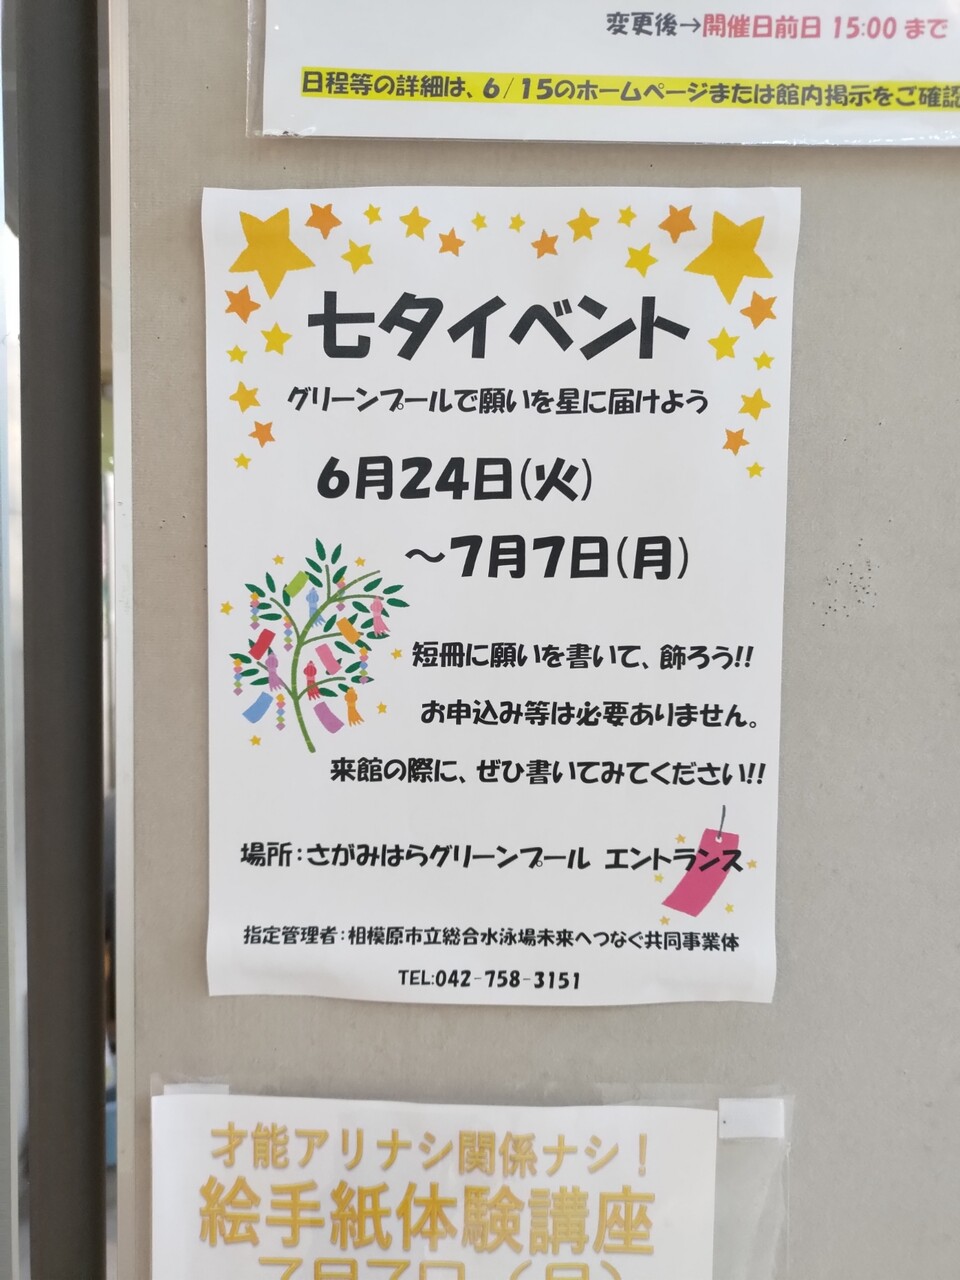 変更後→開催日前日 15:00 まで
日程等の詳細は、6/15のホームページまたは館内掲示をご確認
七夕イベント
グリーンプールで願いを星に届けよう
6月24日(火)
～7月7日(月)
短冊に願いを書いて、飾ろう!!
お申込み等は必要ありません。
来館の際に、ぜひ書いてみてください!!
場所：さがみはらグリーンプール エントランス
指定管理者：相模原市立総合水泳場未来へつなぐ共同事業体
TEL:042-758-3151
才能アリナシ関係ナシ！
絵手紙体験講座
7月7日（月）